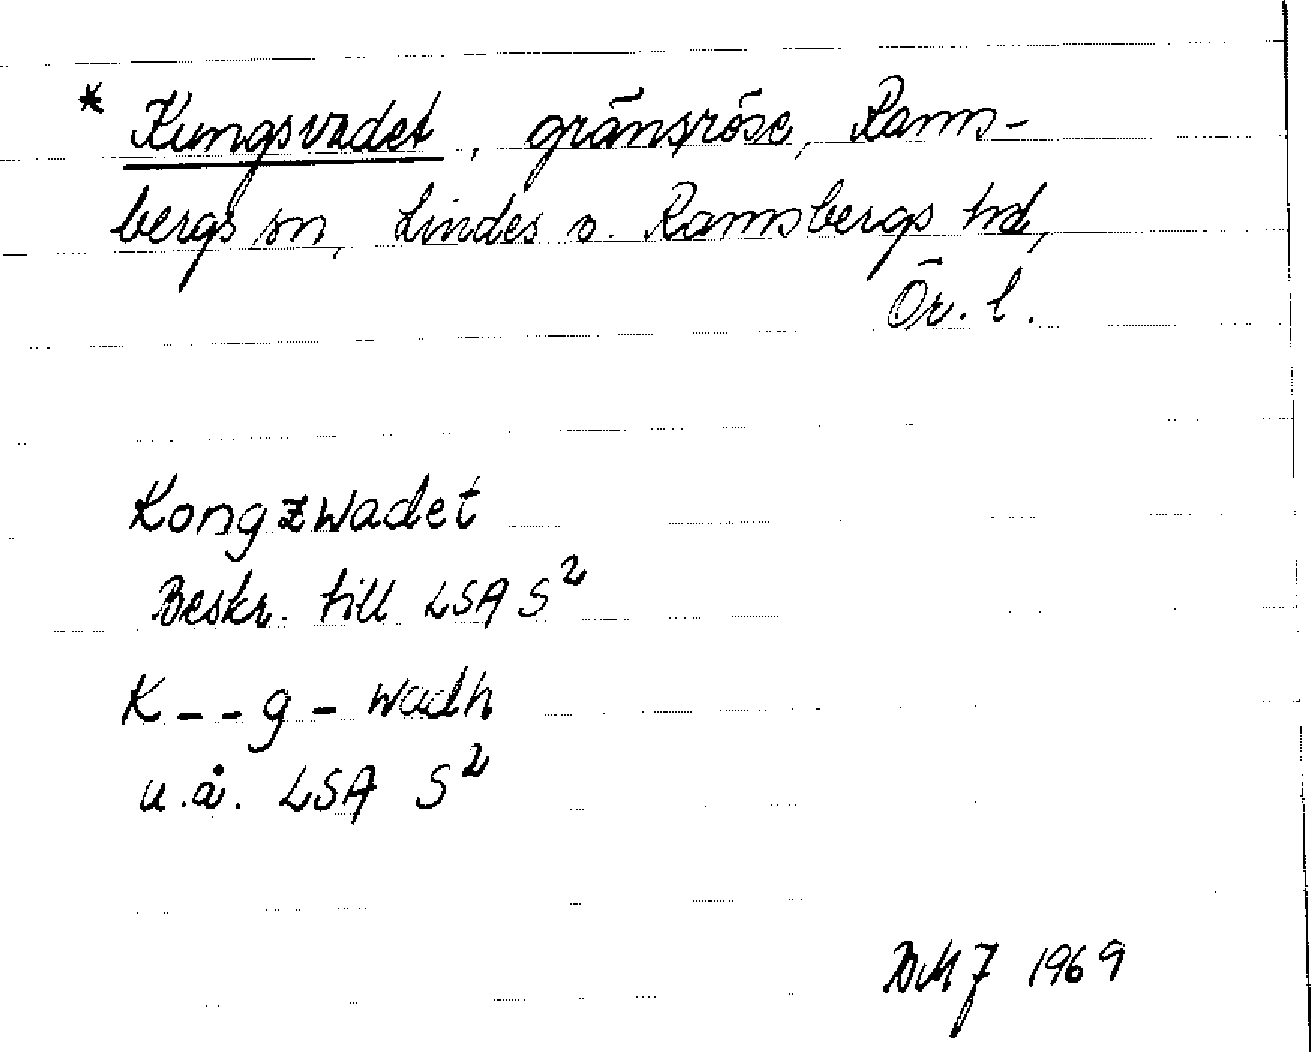 * Kungsvadet, gränsröse, Rams-
bergs sn, Lindes o. Ramsbergs hd,
Ör. l.
Kongzwadet
Beskr. till LSA S²
K--g-wadh
u.å. LSA S²
BMJ 1969